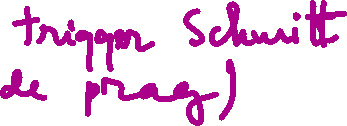 trigger Schmitt
de prag)